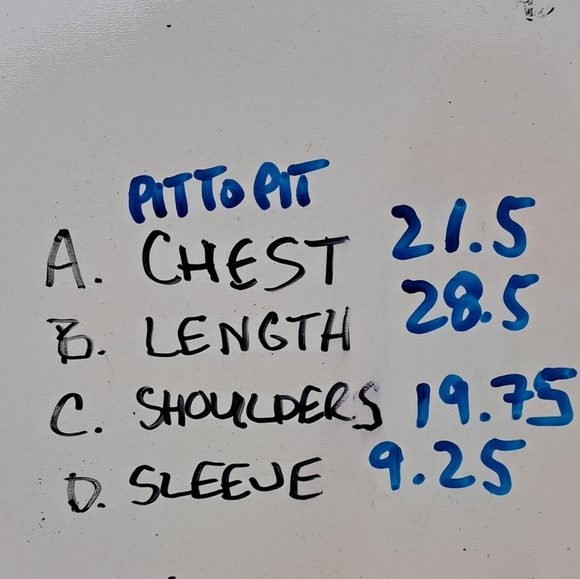 PIT TO PIT
A. CHEST 21.5
B. LENGTH 28.5
C. SHOULDERS 19.75
D. SLEEVE 9.25